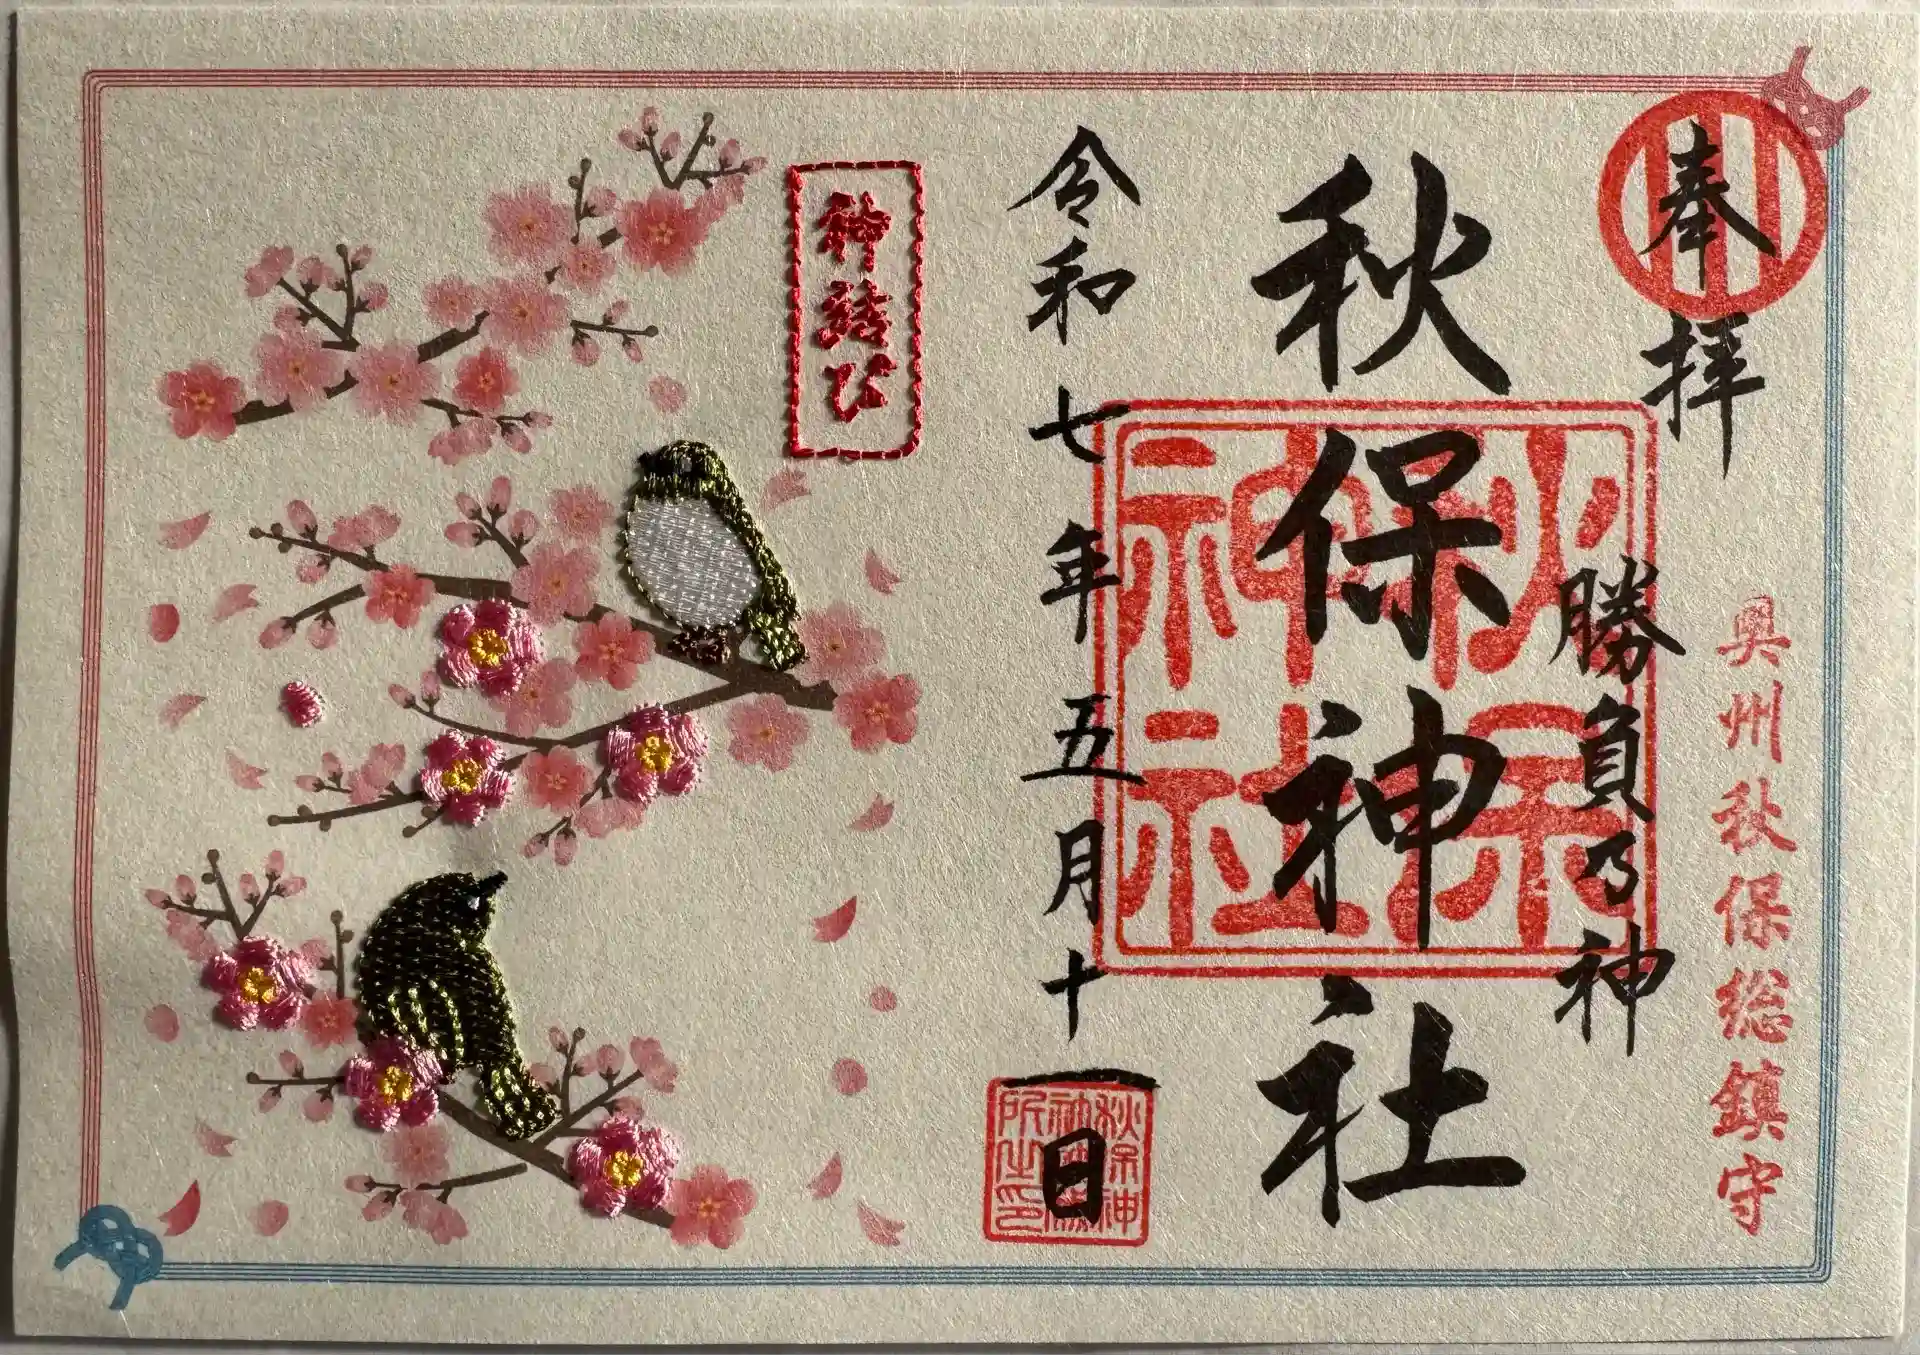 奉拝
奥州秋保総鎮守
勝負乃神
秋保神社
秋保
神社
令和七年五月十一日
神結び